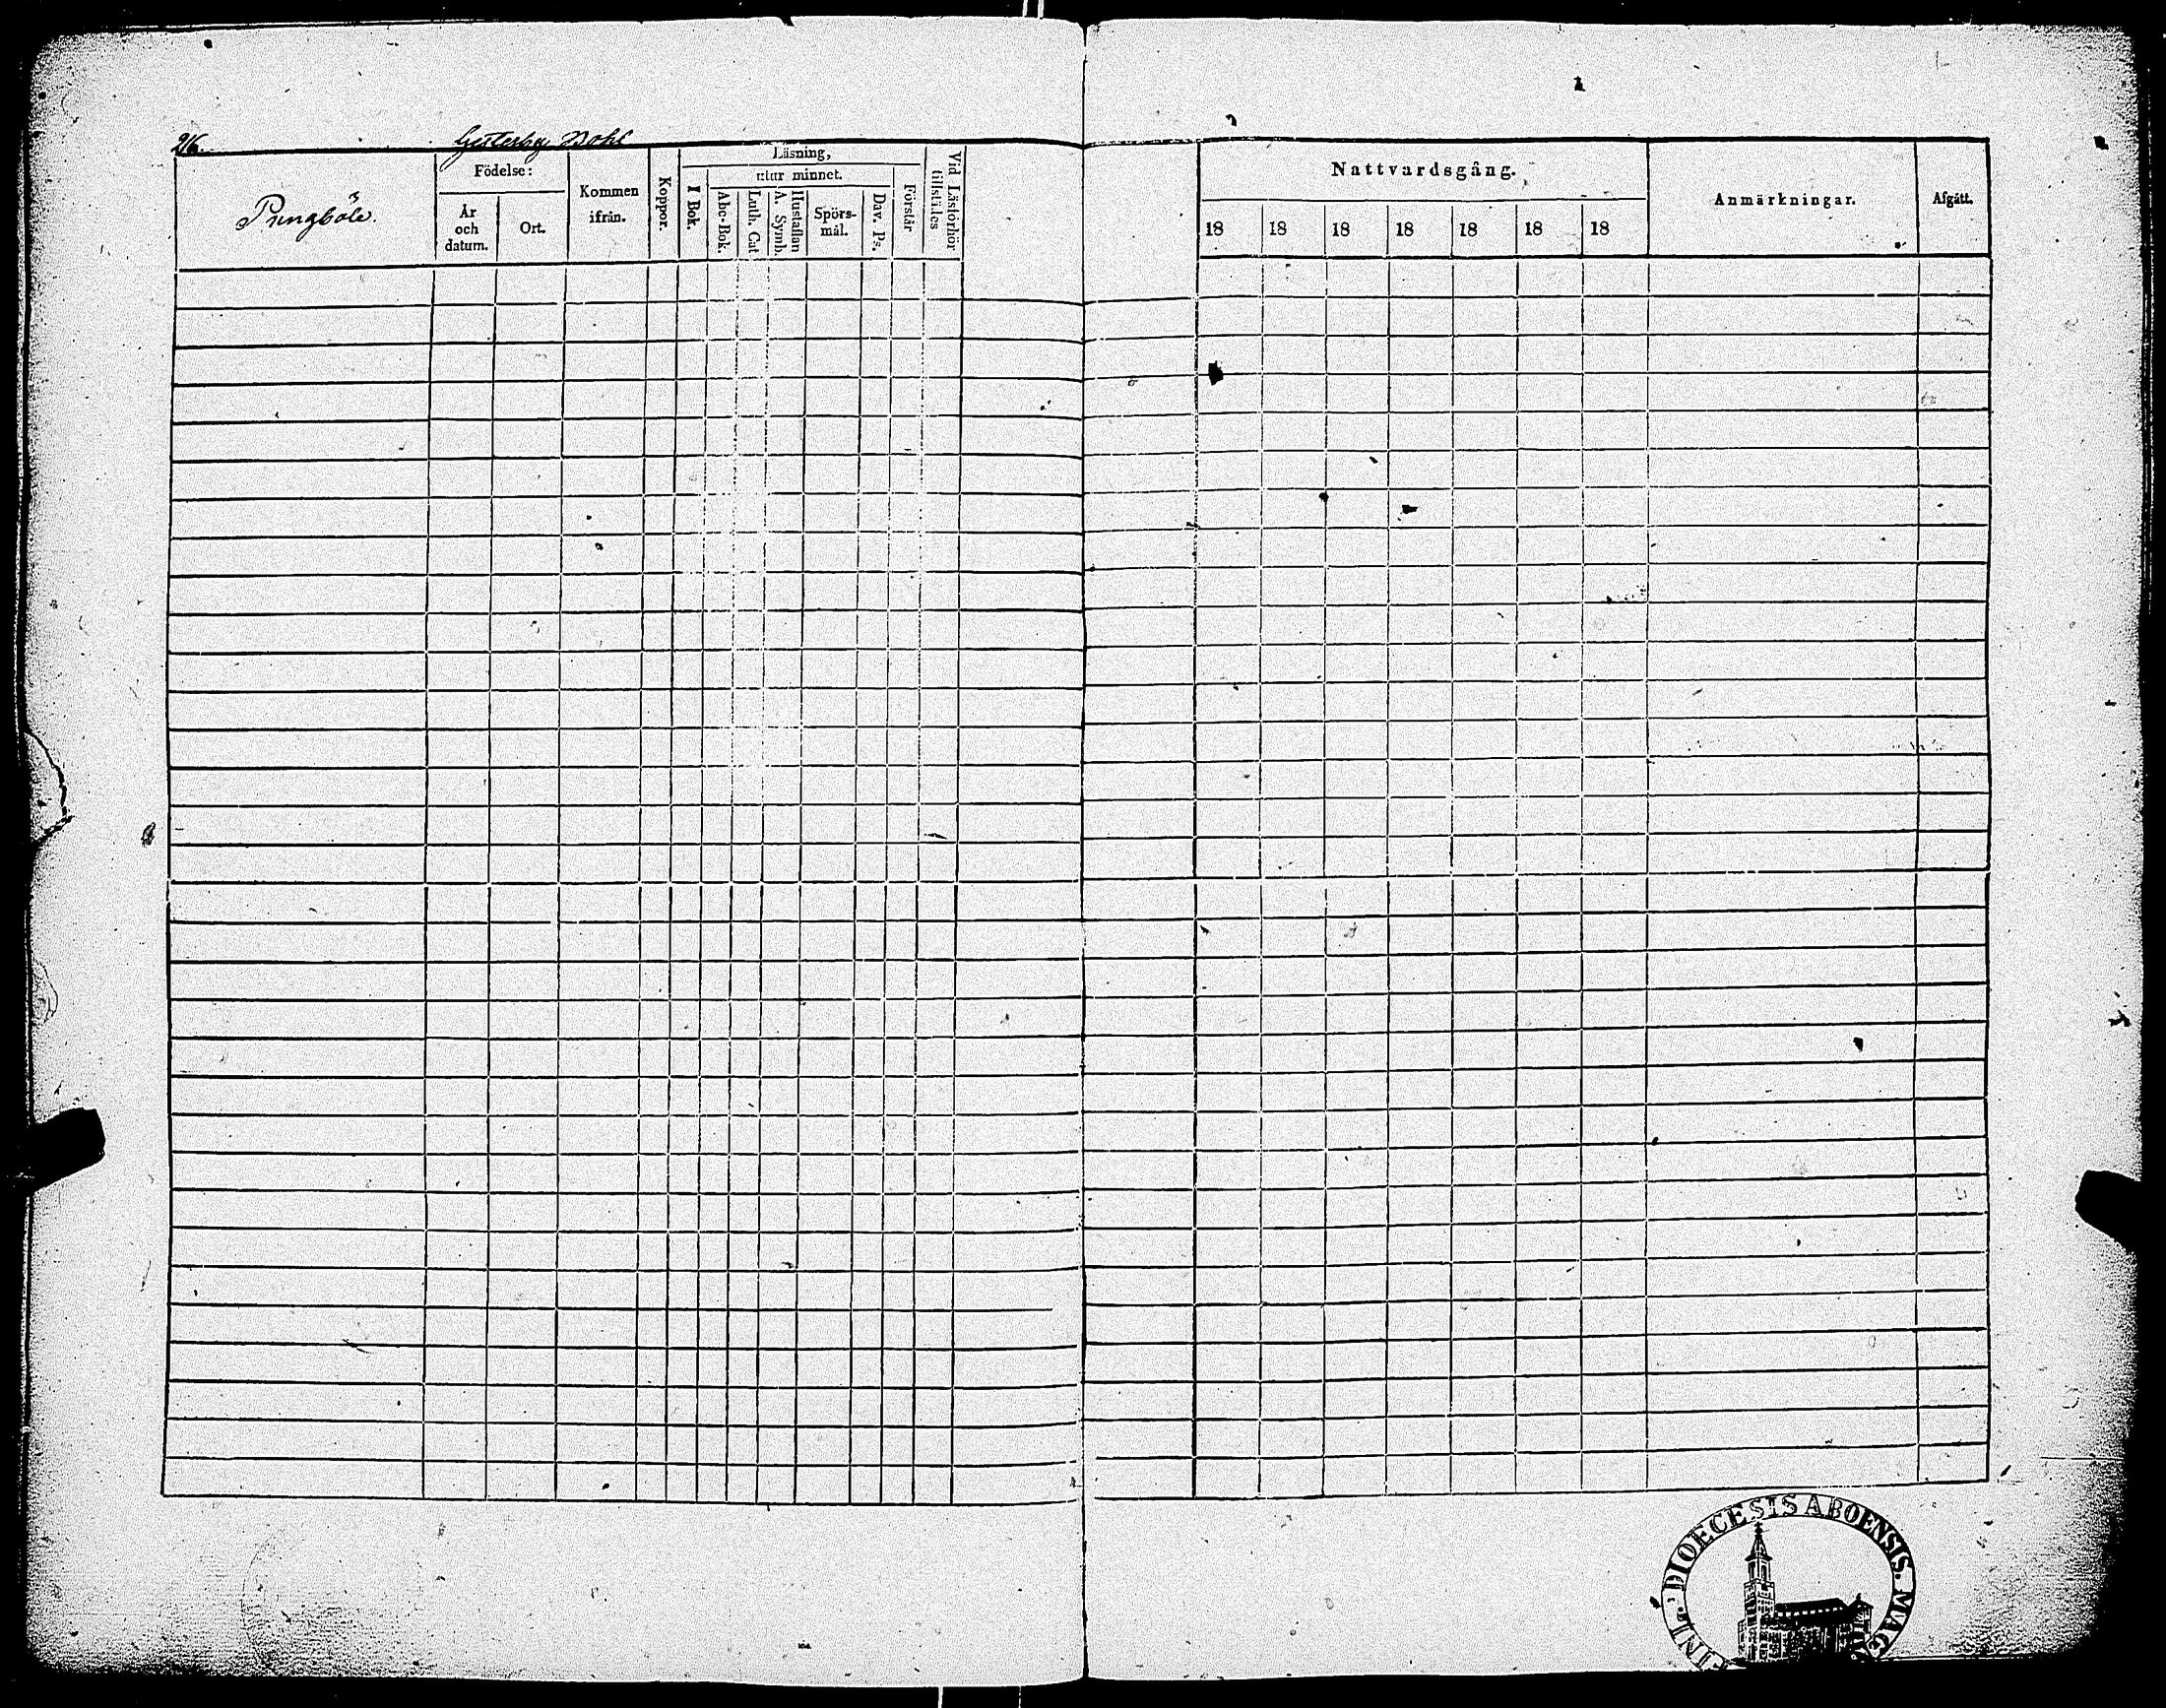 216. Gesterby Bohl
Pungböle.
Födelse:
År
och
datum.
Ort.
Kommen
ifrån.
Koppor.
Läsning,
utur minnet.
I Bok.
Abc-Bok.
Luth. Cat.
A. Symb.
Hustaflan
Spörs-
mål.
Dav. Ps.
Förstår
Vid Läsförhör
tillstädes
Nattvardsgång.
18 18 18 18 18 18 18
Anmärkningar.
Afgått.
DIOECESIS ABOENSIS. MAG
FINL.